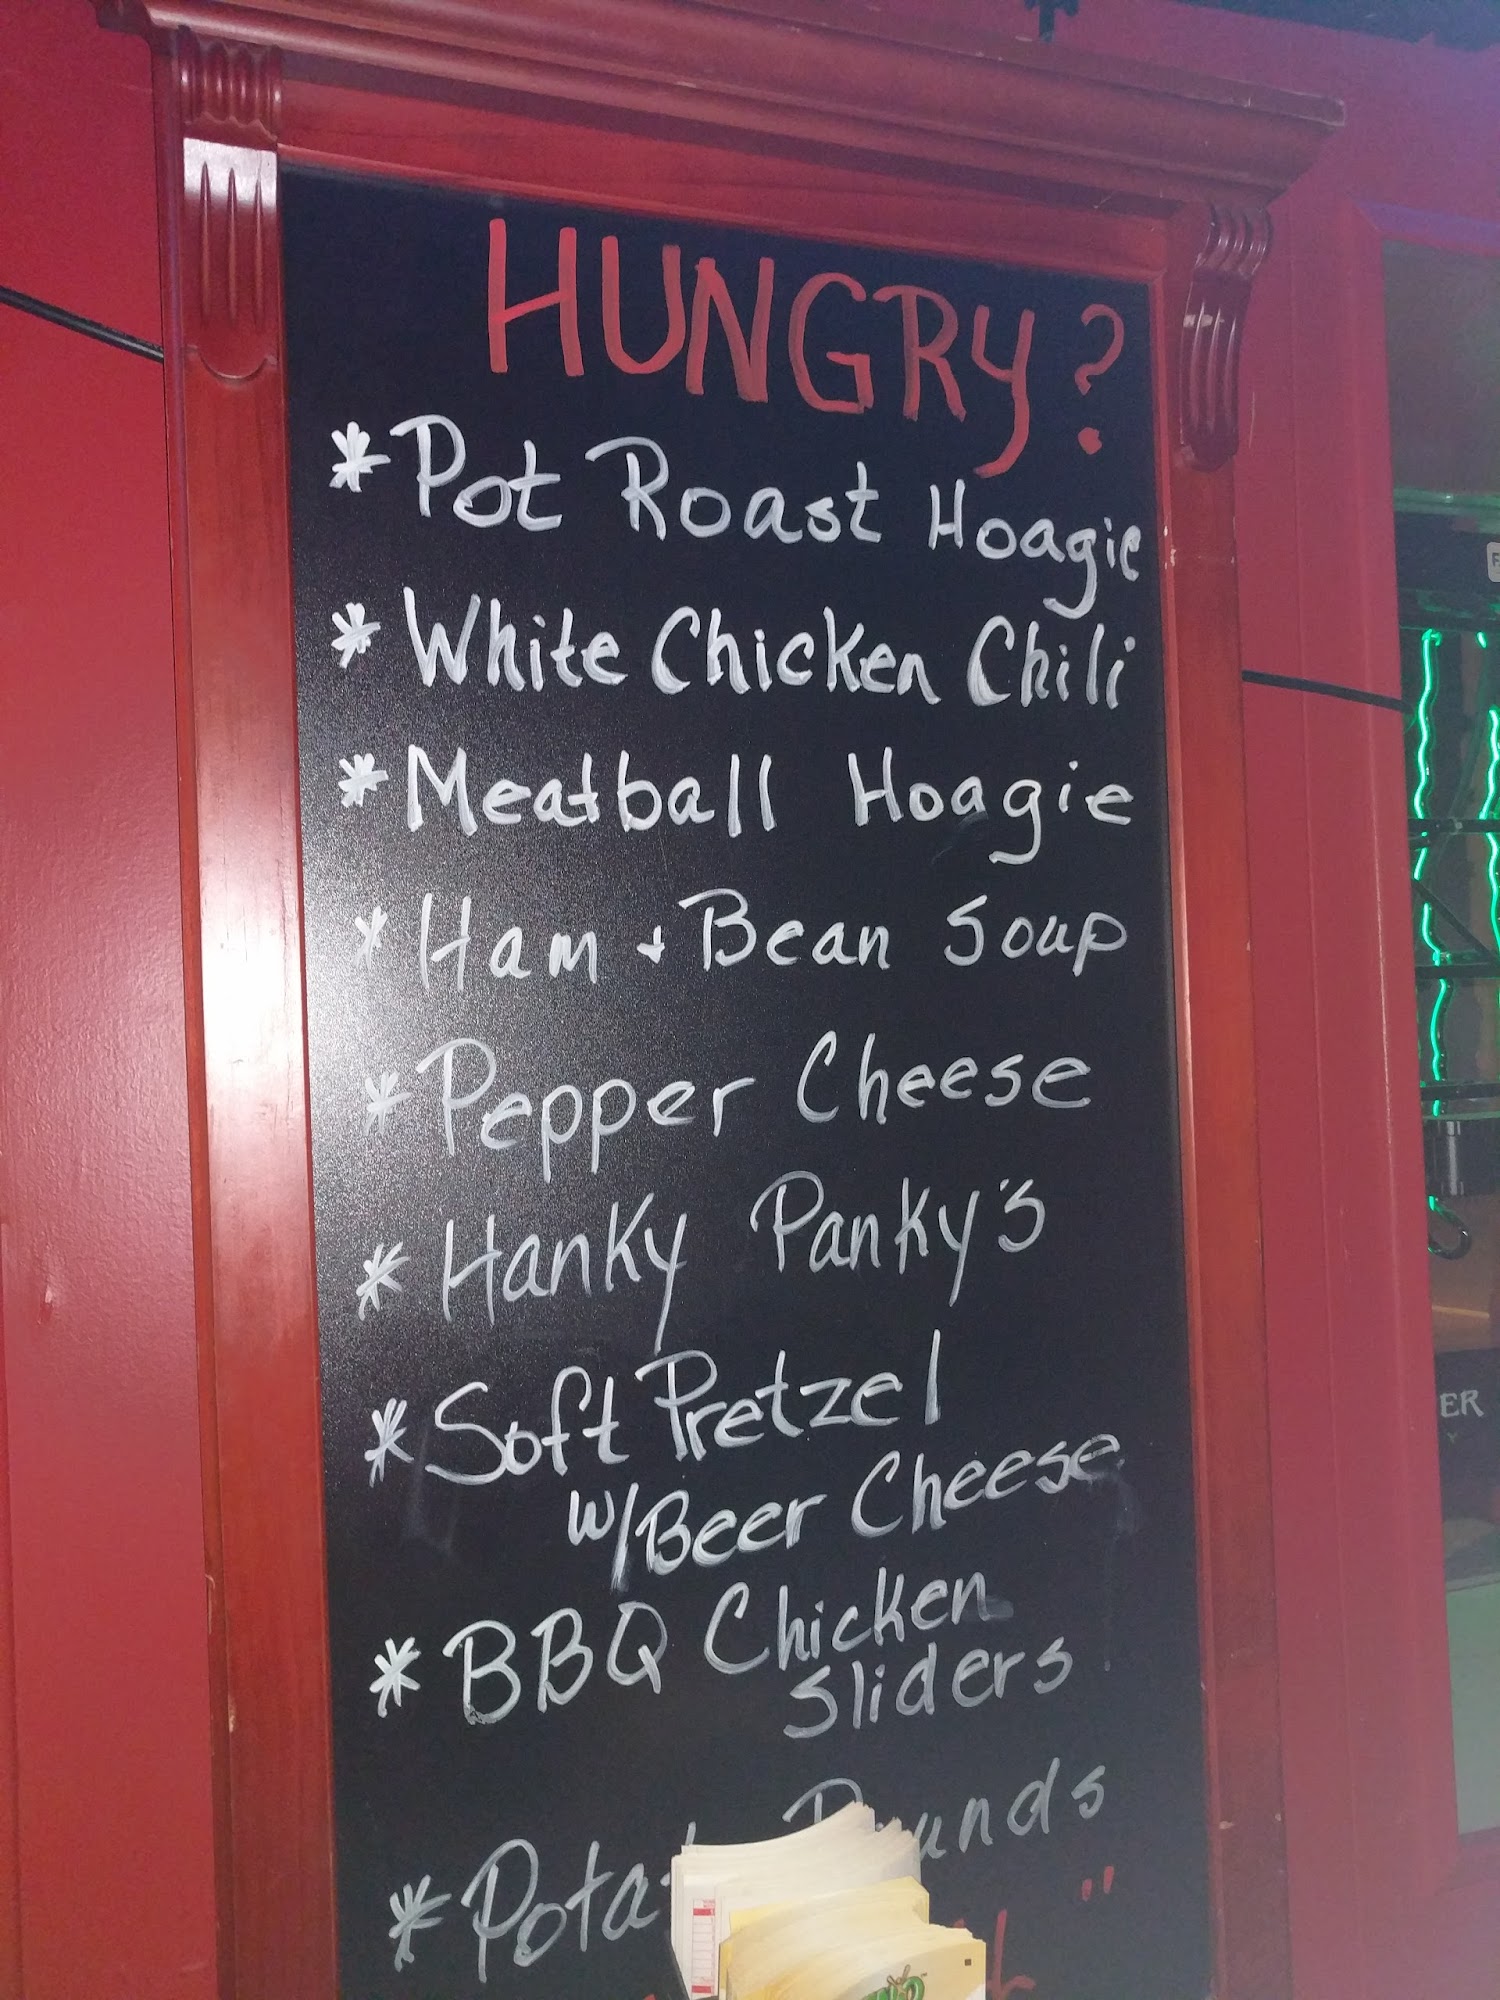 HUNGRY?
* Pot Roast Hoagie
* White Chicken Chili
* Meatball Hoagie
* Ham + Bean Soup
* Pepper Cheese
* Hanky Panky's
* Soft Pretzel
w/Beer Cheese
* BBQ Chicken
Sliders
*
ER
Y